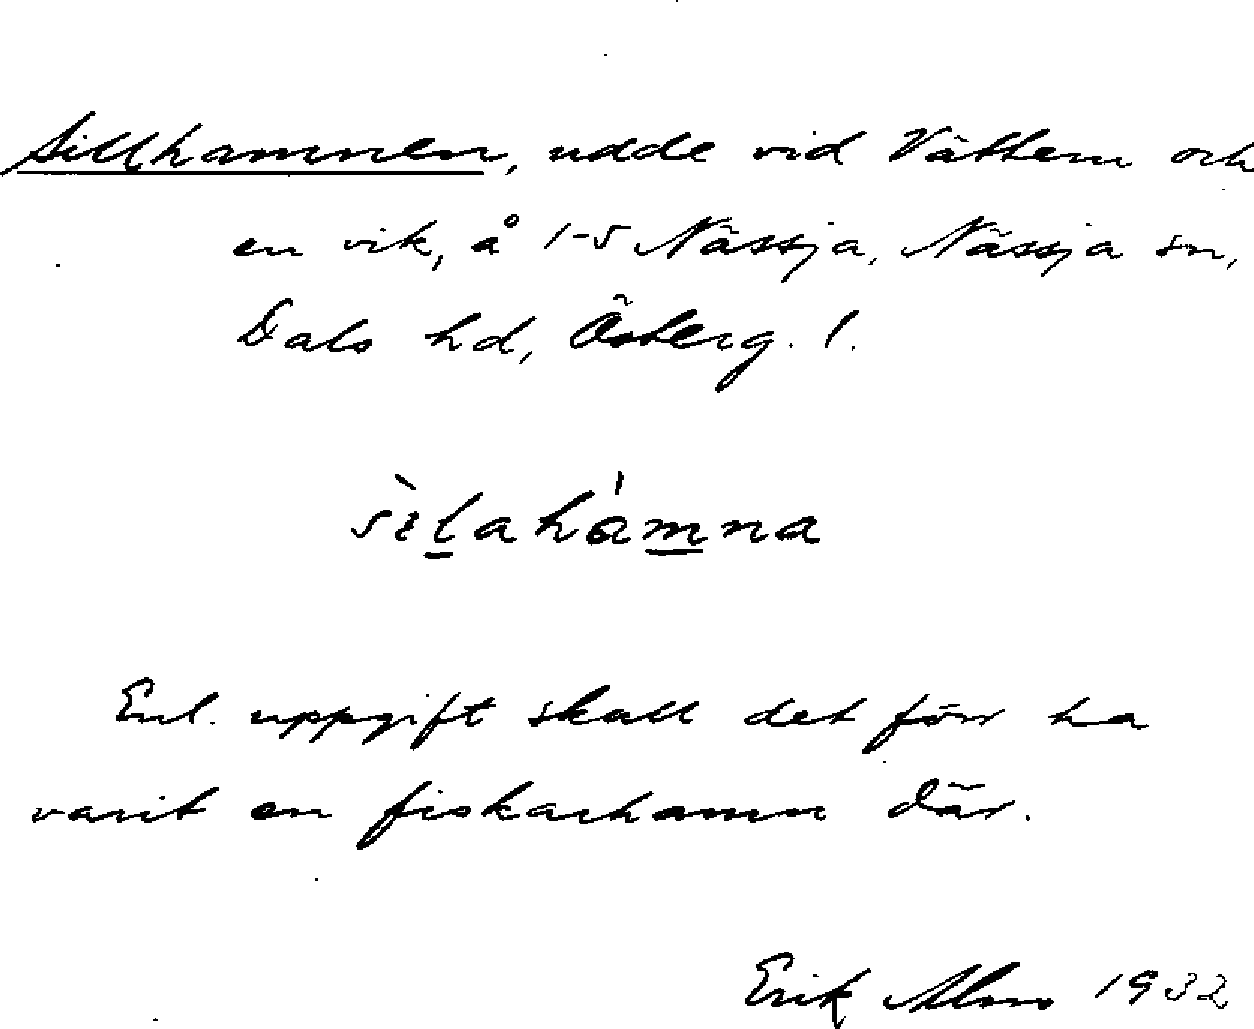 Sillhamnen, udde vid Vättern och
en vik, å 1-5 Nässja, Nässja sn,
Dals hd, Österg. l.
sìlahámna
Enl. uppgift skall det förr ha
varit en fiskarhamn där.
Erik Alms 1932